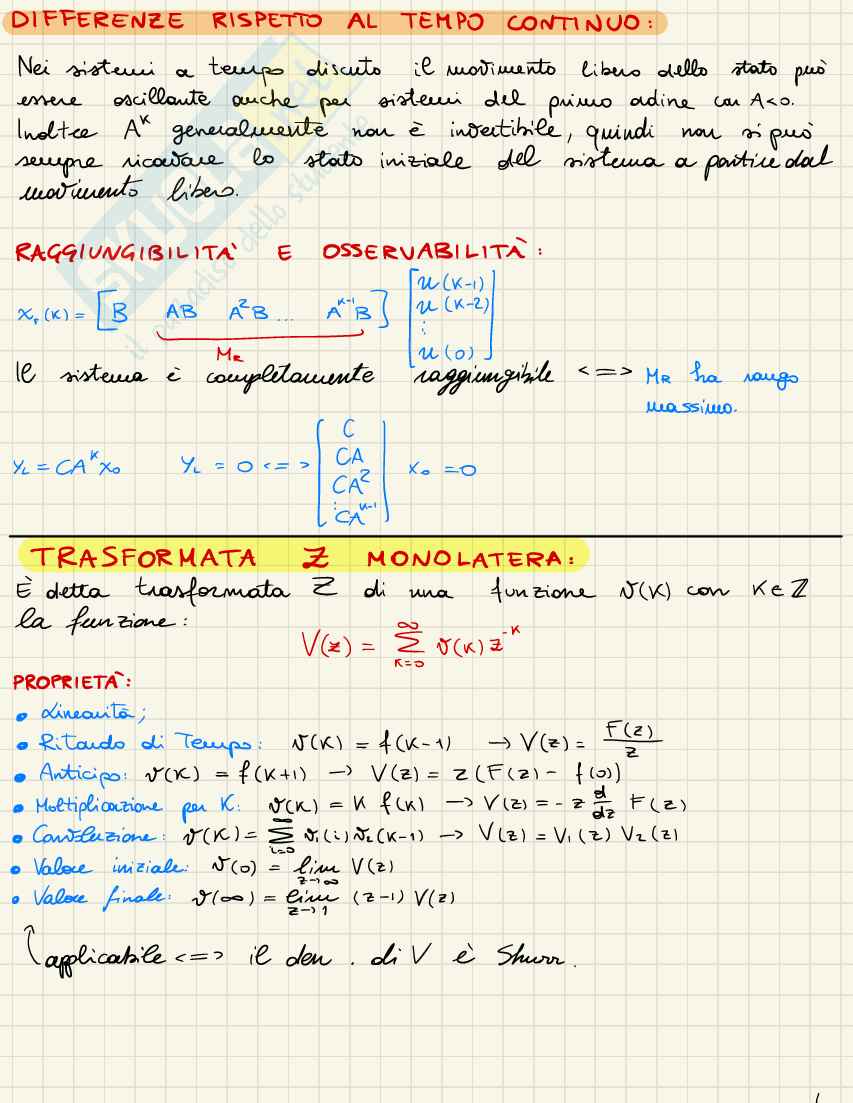 DIFFERENZE RISPETTO AL TEMPO CONTINUO:
Nei sistemi a tempo discreto il movimento libero dello stato può
essere oscillante anche per sistemi del primo ordine con A<0.
Inoltre A^K generalmente non è invertibile, quindi non si può
sempre ricavare lo stato iniziale del sistema a partire dal
movimento libero.
RAGGIUNGIBILITÀ E OSSERVABILITÀ:
x_r(K) = [B AB A²B ... A^{K-1}B] [u(K-1) u(K-2) ⋮ u(0)]
M_R
Il sistema è completamente raggiungibile <=> M_R ha rango
massimo.
y_L = CA^K x_0 y_L = 0 <=> [C CA CA² ⋮ CA^{K-1}] x_0 = 0
TRASFORMATA Z MONOLATERA:
È detta trasformata Z di una funzione v(K) con K∈ℤ
la funzione:
V(z) = ∑_{K=0}^{∞} v(K) z^{-K}
PROPRIETÀ:
• Linearità;
• Ritardo di Tempo: v(K) = f(K-1) → V(z) = F(z)/z
• Anticipo: v(K) = f(K+1) → V(z) = z(F(z) - f(0))
• Moltiplicazione per K: v(K) = K f(K) → V(z) = -z d/dz F(z)
• Convoluzione: v(K) = ∑_{i=0}^{∞} v_1(i) v_2(K-1) → V(z) = V_1(z) V_2(z)
• Valore iniziale: v(0) = lim_{z→∞} V(z)
• Valore finale: v(∞) = lim_{z→1} (z-1) V(z)
applicabile <=> il den. di V è Shurr.
SKUOLA.net
il paradiso dello studente